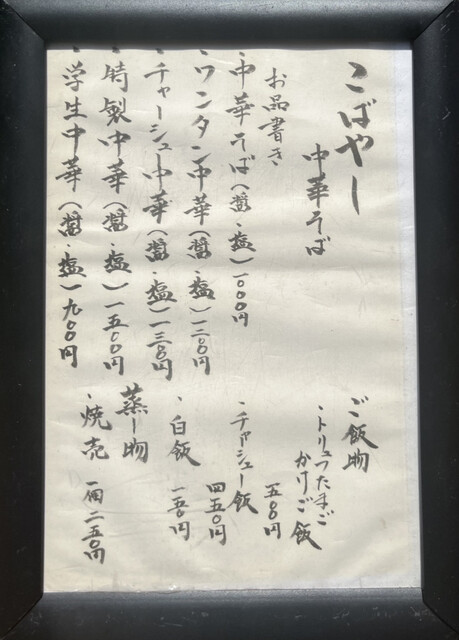 こばやし
中華そば
お品書き
・中華そば(醤・塩)一〇〇〇円
・ワンタン中華(醤・塩)一三〇〇円
・チャーシュー中華(醤・塩)一三五〇円
・特製中華(醤・塩)一五〇〇円
・学生中華(醤・塩)九〇〇円
ご飯物
・トリュフたまご
かけご飯
五〇〇円
・チャーシュー飯
四五〇円
・白飯
一五〇円
蒸し物
・焼売
一個二五〇円